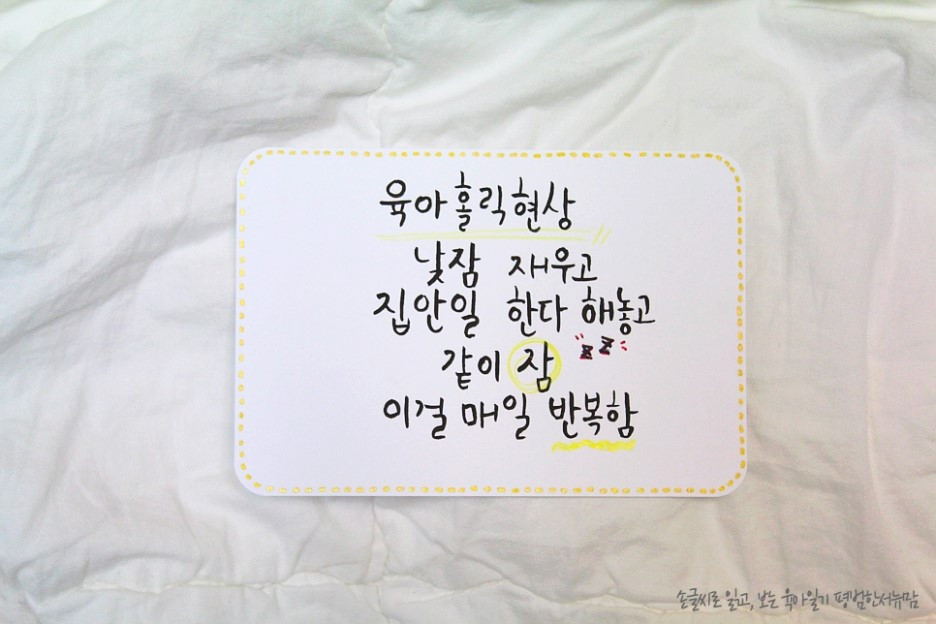 육아홀릭현상
낮잠 재우고
집안일 한다 해놓고
같이 잠 z z
이걸 매일 반복함
손글씨로 읽고, 보는 육아일기 평범한서뉴맘